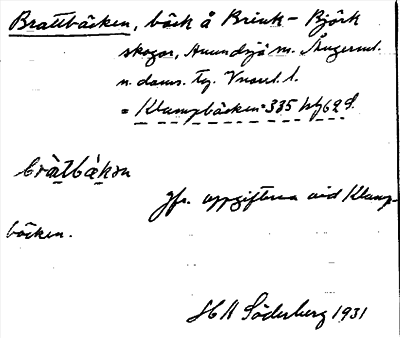 Brattbäcken, bäck å Brink-Björk
skogar, Anundsjö m. Ångerml.
n. doms. Tg.
= Klampbäcken 335
bràtbäkən
Jfr. uppgifterna vid Klamp-
bäcken.
HA Söderberg 1931